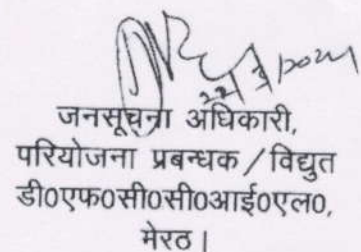 जनसूचना अधिकारी,
परियोजना प्रबन्धक / विद्युत
डी०एफ०सी०सी०आई०एल०,
मेरठ।